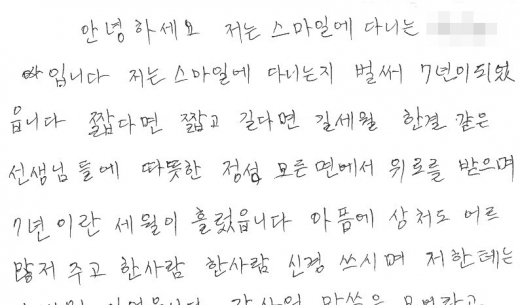 안녕하세요 저는 스마일에 다니는
입니다 저는 스마일에 다니는지 벌써 7년이되었
읍니다 짧다면 짧고 길다면 길세월 한결 같은
선생님 들에 따뜻한 정성 모든면에서 위로를 받으며
7년 이란 세월이 흘렀읍니다 아픔에 상처도 어르
만저 주고 한사람 한사람 신경 쓰시며 저한테는